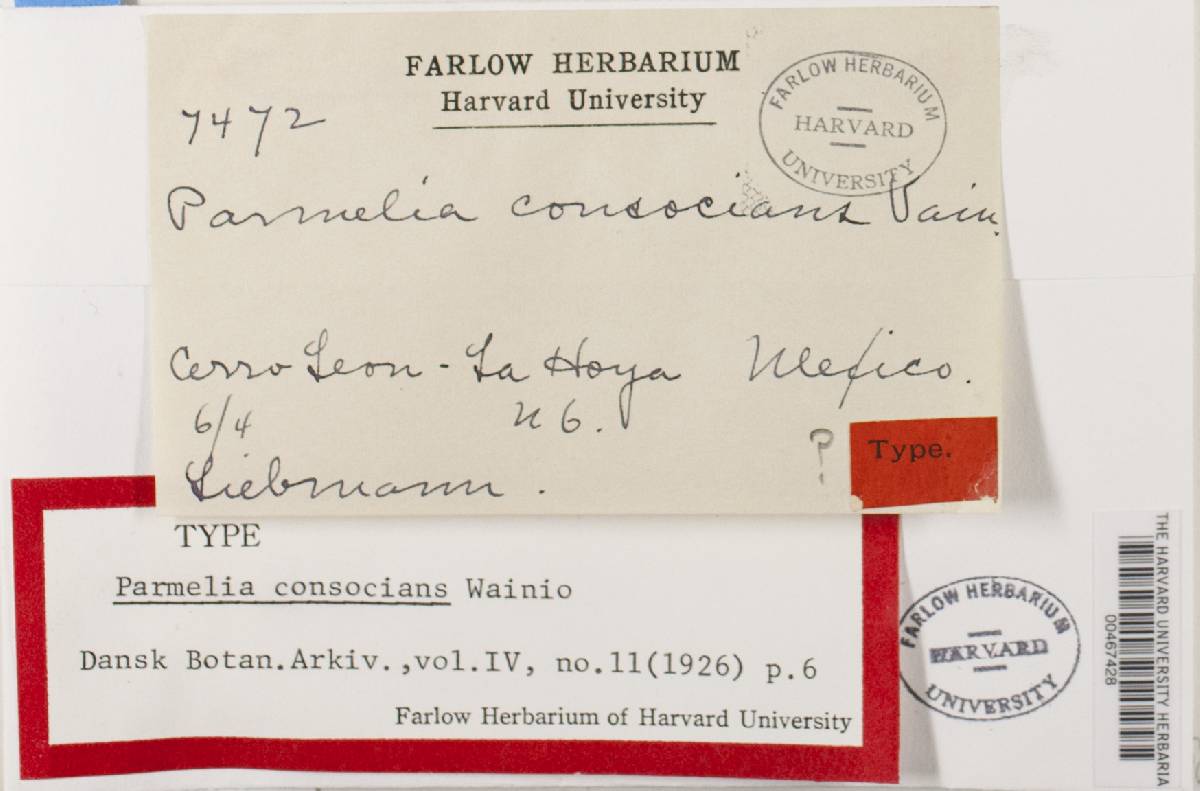 FARLOW HERBARIUM
Harvard University
FARLOW HERBARIUM
HARVARD
UNIVERSITY
7472
Parmelia consocians Vain.
Cerro Leon - La Hoya Mexico.
6/4 n 6.
Liebmann.
? Type.
TYPE
Parmelia consocians Wainio
Dansk Botan.Arkiv.,vol.IV, no.11(1926) p.6
Farlow Herbarium of Harvard University
FARLOW HERBARIUM
HARVARD
UNIVERSITY
THE HARVARD UNIVERSITY HERBARIA
00467428